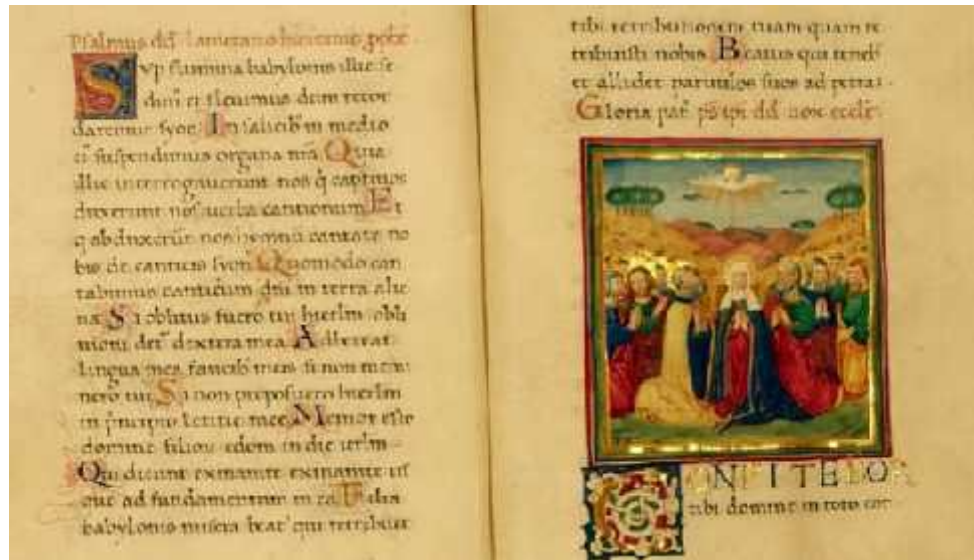 Psalmus dd
Sup flumina babylonis illic se
dim⁹ et flevimus dum recor
daremur syon In salicib⁹ in medio
ei⁹ suspendimus organa n̄ra Quia
illic interrogaverunt nos q̄ captivos
duxerunt nos verba cantionum Et
q abduxerūt nos hemnū cantate no
bis de canticis syon Quomodo can
tabimus canticum dn̄i in terra alie
na Si oblitus fuero tui hierlm obli
vioni det᷑ dextera mea Adhereat
lingua mea faucib⁹ meis si non memi
nero tui Si non proposuero hierlm
in principio letitie mee Memor esto
domine filiorū edom in die ierlm
Qui dicunt exinanite exinanite us
que ad fundamentum in ea Filia
babylonis misera beat᷑ qui retribuet
tibi retributionem tuam quam re
tribuisti nobis Beatus qui tenebit
et allidet parvulos suos ad petra
Gloria pat᷑ ps ipi dd vox eccle
CONFITEBOR
tibi domine in toto cor